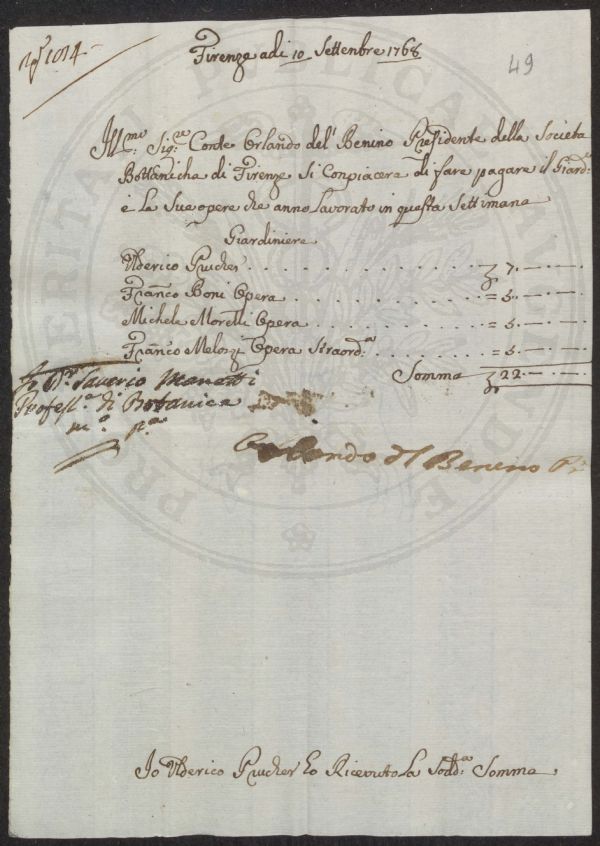 N.º 1014
49
Firenze adi 10 Settenbre 1768
Ill.mo: Sig.re Conte Orlando del' Benino Presidente della Società
Bottanicha di Firenze Si Conpiacera di fare pagare il Giard.e
e La Sua opere che anno Lavorato in questa Settimana
Giardiniere
Ulderico Prucher . . . . . . . . . . . . 7. — . —
Franco Boni Opera . . . . . . . . . . . = 5. — . —
Michele Morelli Opera . . . . . . . . . . = 5. — . —
Franco Melozzi Opera Straord.a . . . . . . . = 5. — . —
Somma 22. — . —
Io D.r Saverio Manetti
Profess.e di Botanica
m.o p.a
Orlando del Benino P.
Io Ulderico Prucher ho Riceuto La Sodd.a Somma
PRO VERITATI PUBLICAE AUGENDAE